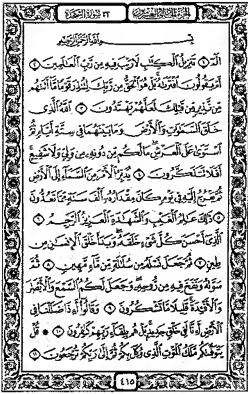 الجزء الحادي والعشرون ٣٢ سورة السجدة
بِسْمِ اللَّهِ الرَّحْمَٰنِ الرَّحِيمِ
الٓمٓ ١ تَنزِيلُ الْكِتَٰبِ لَا رَيْبَ فِيهِ مِن رَّبِّ الْعَٰلَمِينَ ٢
أَمْ يَقُولُونَ افْتَرَىٰهُ بَلْ هُوَ الْحَقُّ مِن رَّبِّكَ لِتُنذِرَ قَوْمًا مَّا أَتَىٰهُم
مِّن نَّذِيرٍ مِّن قَبْلِكَ لَعَلَّهُمْ يَهْتَدُونَ ٣ اللَّهُ الَّذِي
خَلَقَ السَّمَٰوَٰتِ وَالْأَرْضَ وَمَا بَيْنَهُمَا فِي سِتَّةِ أَيَّامٍ ثُمَّ
اسْتَوَىٰ عَلَى الْعَرْشِ مَا لَكُم مِّن دُونِهِ مِن وَلِيٍّ وَلَا شَفِيعٍ
أَفَلَا تَتَذَكَّرُونَ ٤ يُدَبِّرُ الْأَمْرَ مِنَ السَّمَاءِ إِلَى الْأَرْضِ
ثُمَّ يَعْرُجُ إِلَيْهِ فِي يَوْمٍ كَانَ مِقْدَارُهُ أَلْفَ سَنَةٍ مِّمَّا تَعُدُّونَ
٥ ذَٰلِكَ عَٰلِمُ الْغَيْبِ وَالشَّهَٰدَةِ الْعَزِيزُ الرَّحِيمُ ٦
الَّذِي أَحْسَنَ كُلَّ شَيْءٍ خَلَقَهُ وَبَدَأَ خَلْقَ الْإِنسَٰنِ مِن
طِينٍ ٧ ثُمَّ جَعَلَ نَسْلَهُ مِن سُلَٰلَةٍ مِّن مَّاءٍ مَّهِينٍ ٨ ثُمَّ
سَوَّىٰهُ وَنَفَخَ فِيهِ مِن رُّوحِهِ وَجَعَلَ لَكُمُ السَّمْعَ وَالْأَبْصَٰرَ
وَالْأَفْئِدَةَ قَلِيلًا مَّا تَشْكُرُونَ ٩ وَقَالُوا أَءِذَا ضَلَلْنَا فِي
الْأَرْضِ أَءِنَّا لَفِي خَلْقٍ جَدِيدٍ بَلْ هُم بِلِقَاءِ رَبِّهِمْ كَٰفِرُونَ ١٠ قُلْ
يَتَوَفَّىٰكُم مَّلَكُ الْمَوْتِ الَّذِي وُكِّلَ بِكُمْ ثُمَّ إِلَىٰ رَبِّكُمْ تُرْجَعُونَ ١١
٤١٥